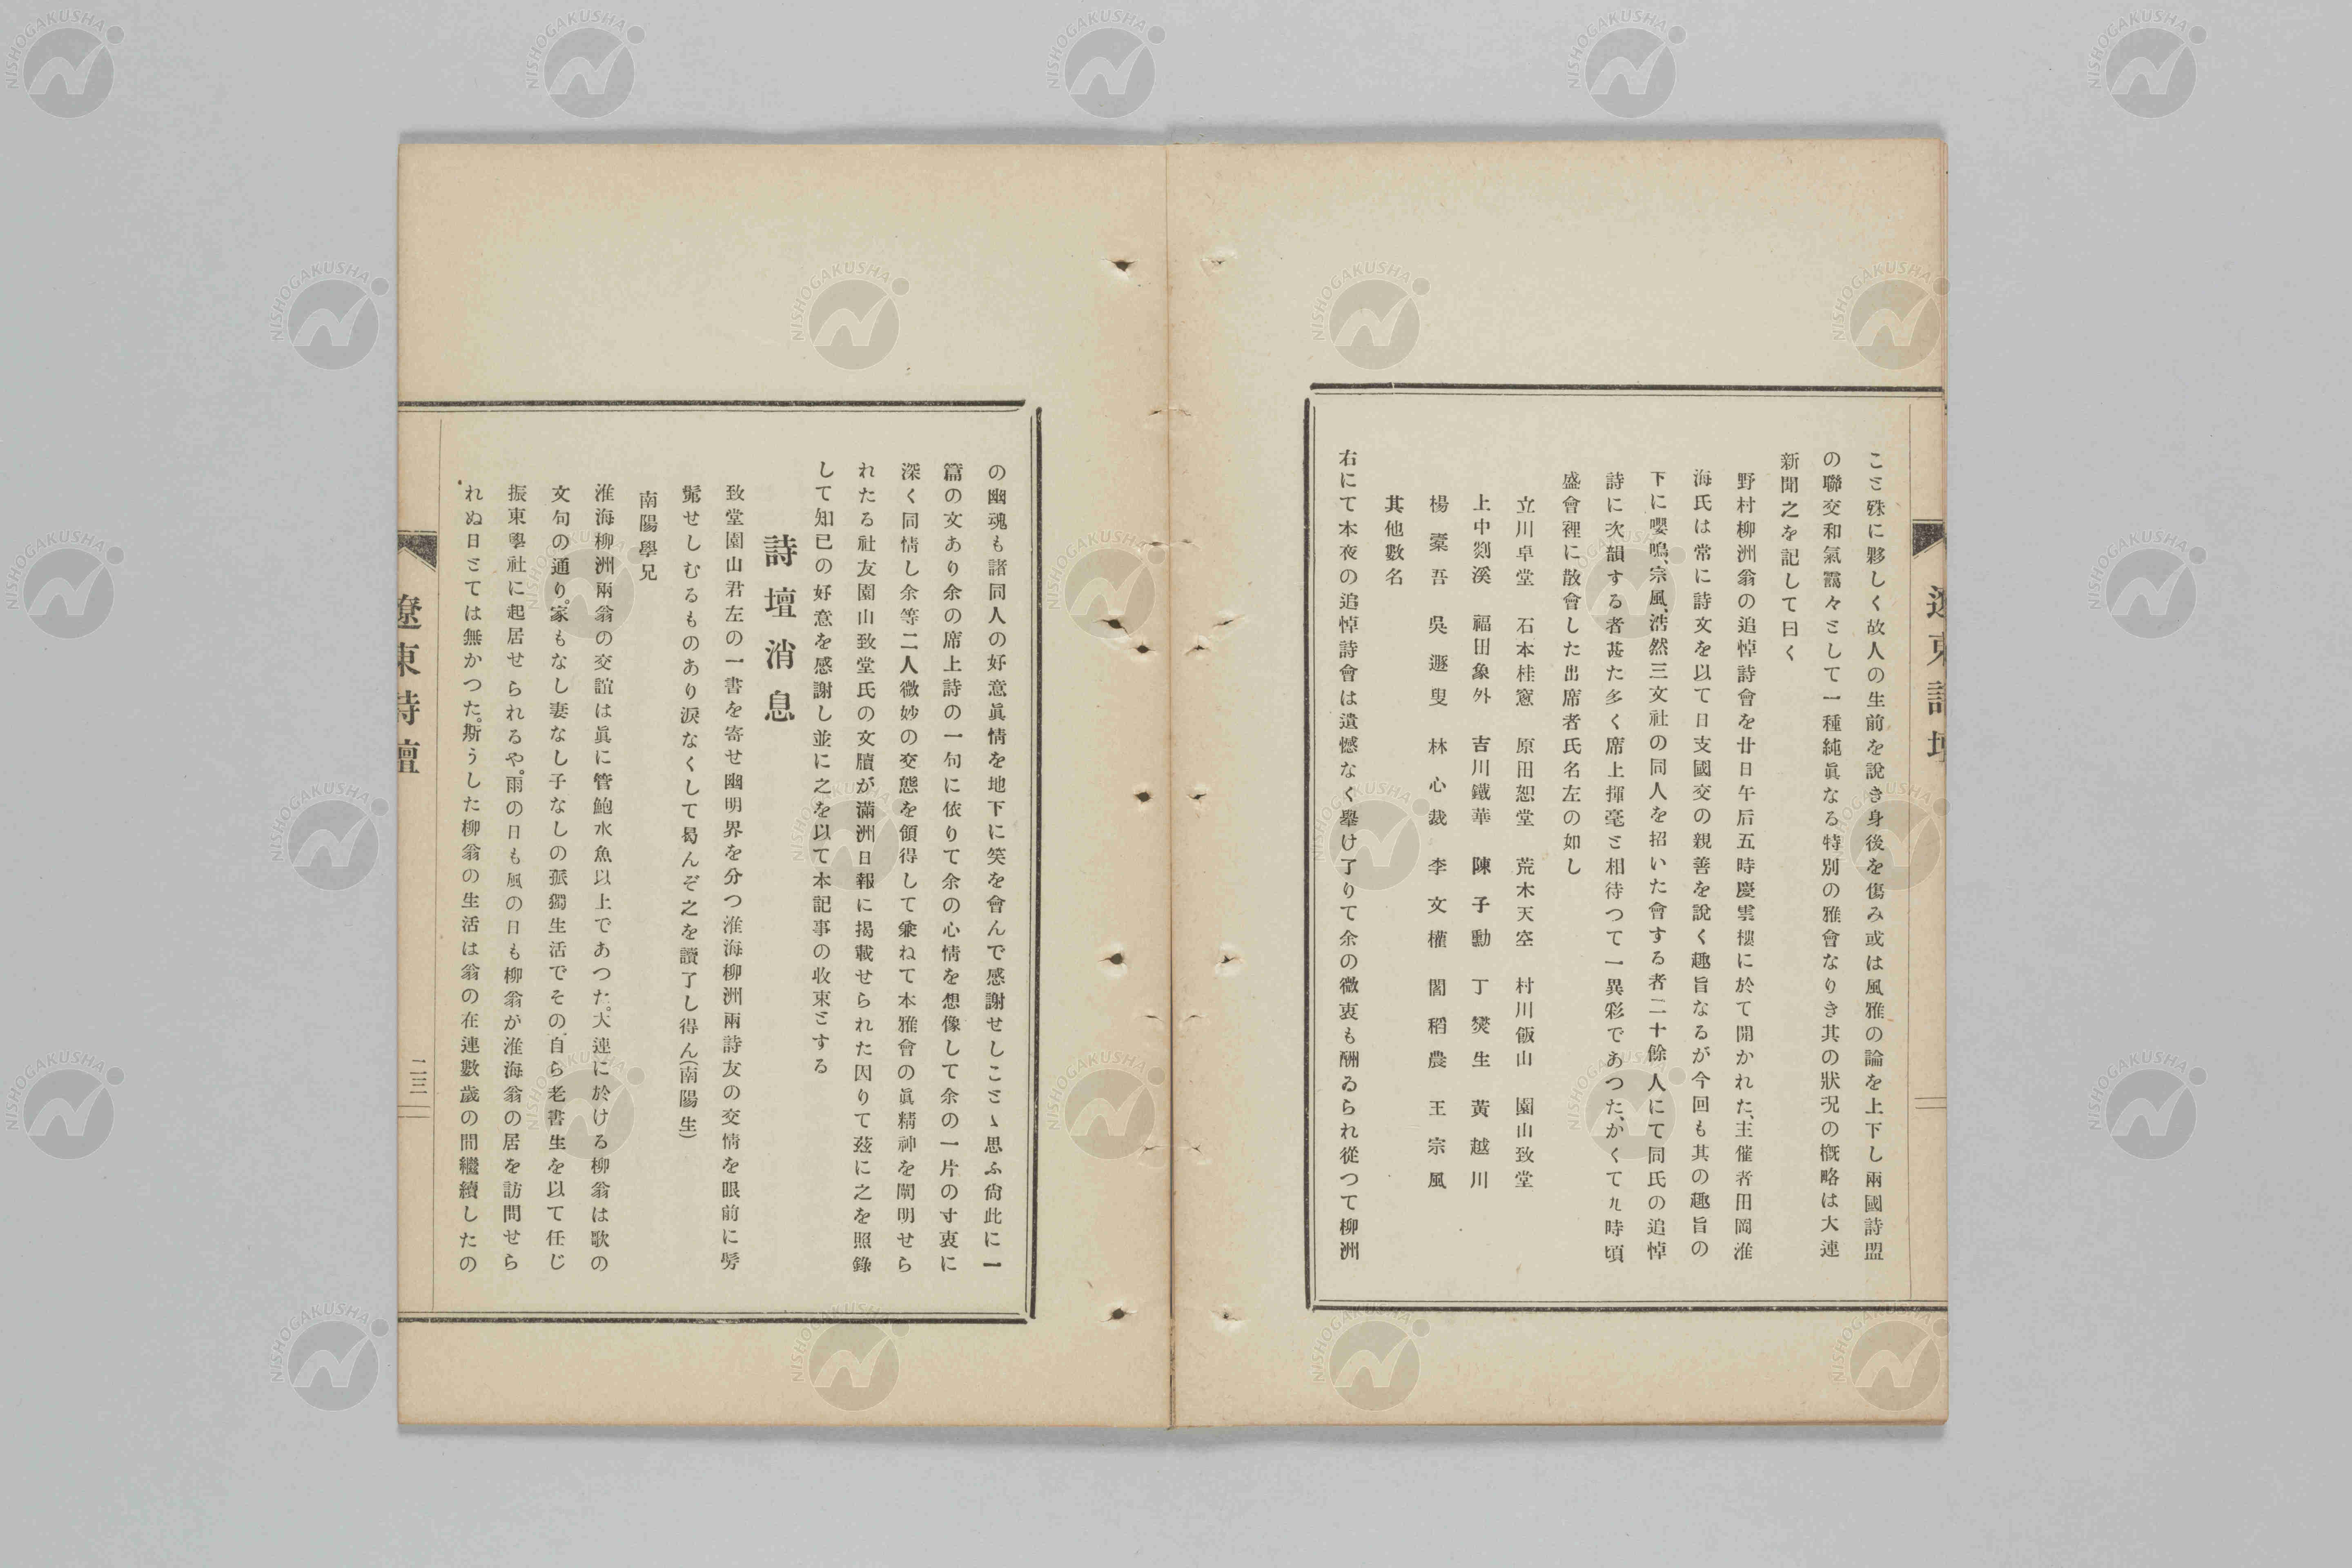 こと殊に夥しく故人の生前を說き身後を傷み或は風雅の論を上下し兩國詩盟
の聯交和氣靄々として一種純眞なる特別の雅會なりき其の狀況の槪略は大連
新聞之を記して曰く
野村柳洲翁の追悼詩會を廿日午后五時慶雲樓に於て開かれた、主催者田岡淮
海氏は常に詩文を以て日支國交の親善を說く趣旨なるが今回も其の趣旨の
下に嚶鳴、宗風、浩然三文社の同人を招いた會する者二十餘人にて同氏の追悼
詩に次韻する者甚た多く席上揮毫と相待つて一異彩であつた、かくて九時頃
盛會裡に散會した出席者氏名左の如し
立川卓堂 石本桂窓 原田恕堂 荒木天空 村川飯山 園山致堂
上中剡溪 福田象外 吉川鐵華 陳子勳 丁燮生 黃越川
楊槖吾 吳遯叟 林心裁 李文權 閻稻農 王宗風
其他數名
右にて本夜の追悼詩會は遺憾なく擧け了りて余の微衷も酬ゐられ從つて柳洲
の幽魂も諸同人の好意眞情を地下に笑を會んで感謝せしことゝ思ふ尙此に一
篇の文あり余の席上詩の一句に依りて余の心情を想像して余の一片の寸衷に
深く同情し余等二人微妙の交態を領得して兼ねて本雅會の眞精神を闡明せら
れたる社友園山致堂氏の文牘が滿洲日報に揭載せられた因りて玆に之を照錄
して知已の好意を感謝し並に之を以て本記事の收束とする
詩壇消息
致堂園山君左の一書を寄せ幽明界を分つ淮海柳洲兩詩友の交情を眼前に髣
髴せしむるものあり淚なくして曷んぞ之を讀了し得ん(南陽生)
南陽學兄
淮海柳洲兩翁の交誼は眞に管鮑水魚以上であつた。大連に於ける柳翁は歌の
文句の通り。家もなし妻なし子なしの孤獨生活でその自ら老書生を以て任じ
振東學社に起居せられるや。雨の日も風の日も柳翁が淮海翁の居を訪問せら
れぬ日とては無かつた。斯うした柳翁の生活は翁の在連數歲の間繼續したの
遼東詩壇
二三